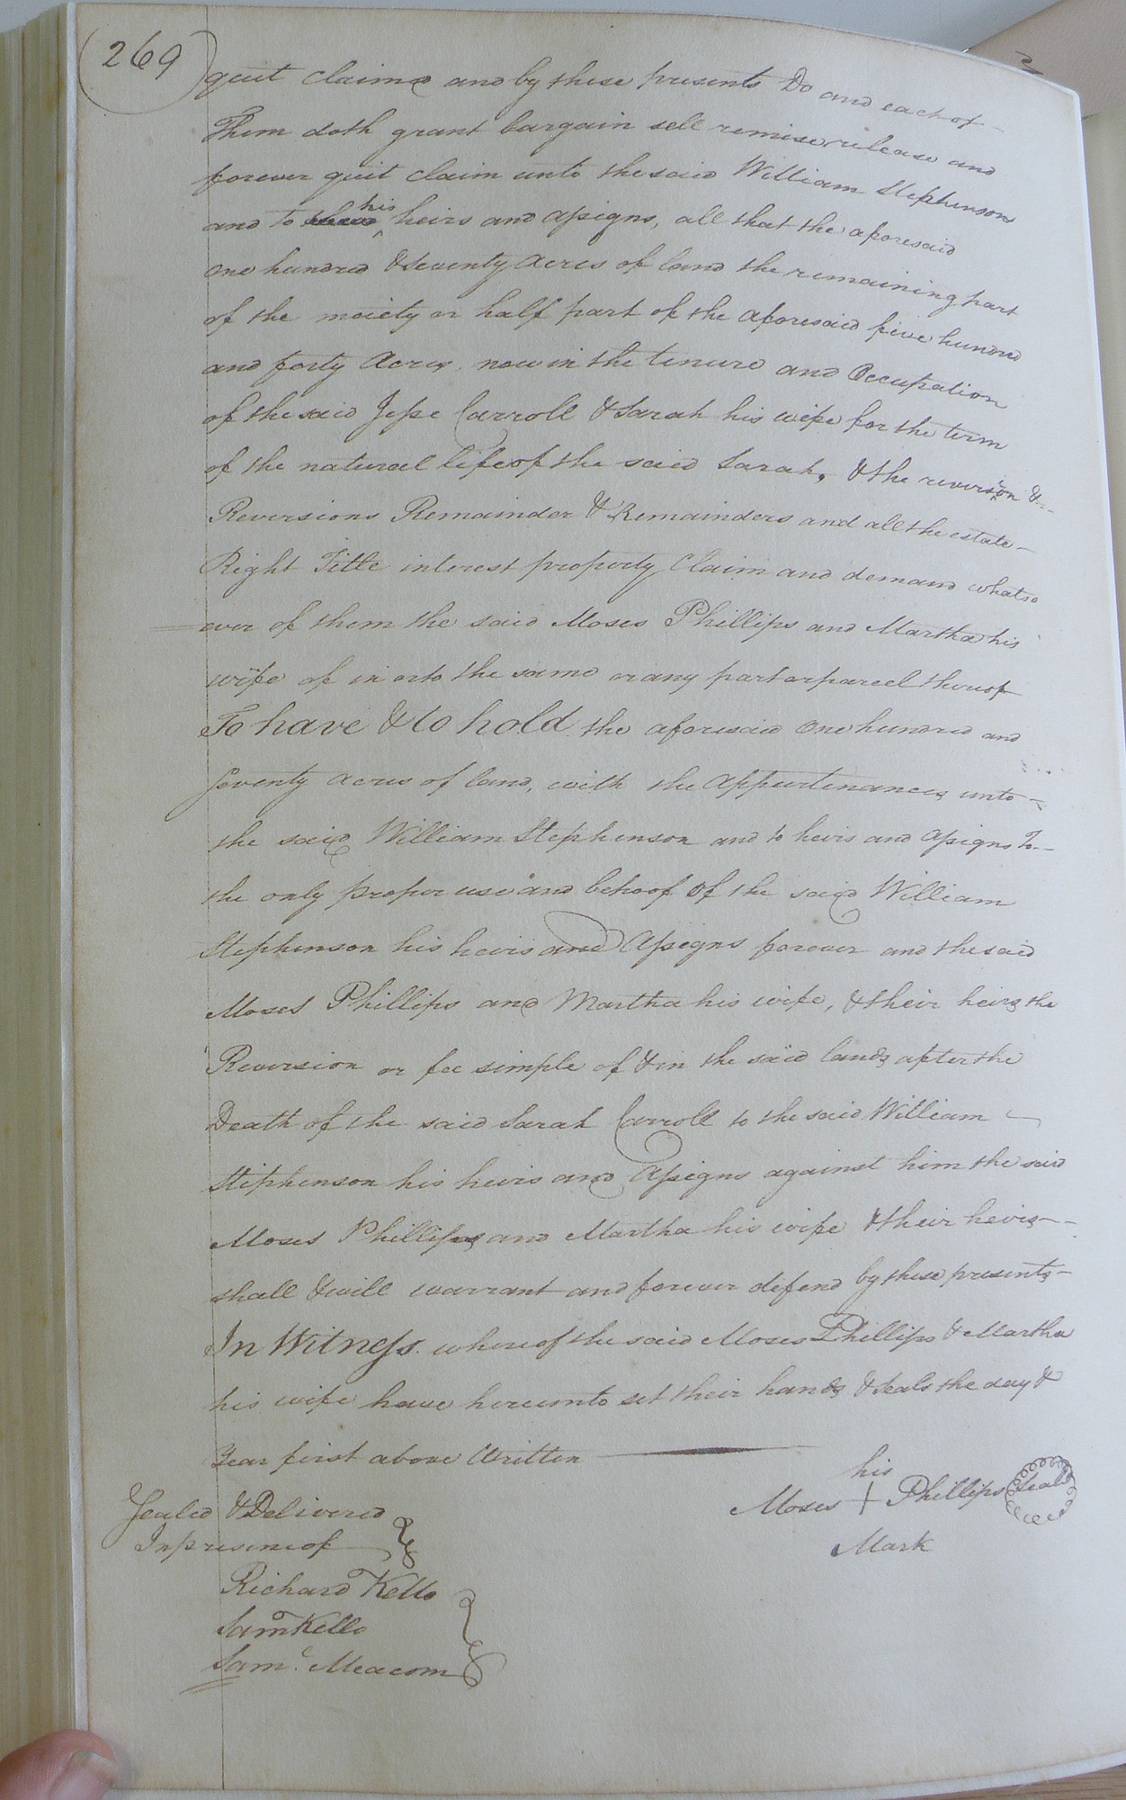 269
quit claimd and by these presents Do and each of
Them doth grant bargain sell remise release and
forever quit claim unto the said William Stephenson
and to his heirs and assigns, all that the aforesaid
one hundred & seventy acres of land the remaining part
of the moiety or half part of the aforesaid five hundred
and forty Acres now in the tenure and Occupation
of the said Jesse Carroll & Sarah his wife for the term
of the natural life of the said Sarah, & the reversion &
Reversions Remainder & Remainders and all the estate
Right Title interest property Claim and demand whatso
ever of them the said Moses Phillips and Martha his
wife of in or to the same or any part or parcel thereof
To have & to hold the aforesaid One hundred and
Seventy acres of land, with the Appurtenances unto
the said William Stephenson and to heirs and Assigns To
the only proper use and behoof of the said William
Stephenson his heirs and Assigns forever and the said
Moses Phillips and Martha his wife, & their heirs the
Reversion or fee simple of & in the said lands after the
Death of the said Sarah Carroll to the said William
Stephenson his heirs and Assigns against him the said
Moses Phillips and Martha his wife & their heirs
shall & will warrant and forever defend by these presents
In Witness whereof the said Moses Phillips & Martha
his wife have hereunto set their hands & Seals the day &
Year first above Written
his
Moses + Phillips Seal
Mark
Sealed & Delivered
In presence of
Richard Kello
Sam Kello
Sam. Meacom